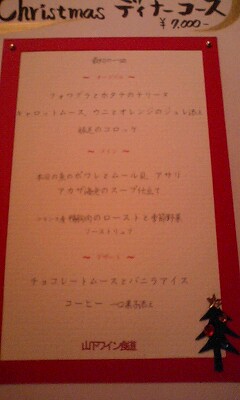 Christmas ディナーコース
¥7,000-
～ オードブル ～
フォワグラとホタテのテリーヌ
キャロットムース ウニとオレンジのジュレ添え
のコロッケ
～ メイン ～
本日の魚のポワレとムール貝 アサリ
アカザ海老のスープ仕立て
のローストと季節野菜
～ デザート ～
チョコレートムースとバニラアイス
コーヒー
山下ワイン食道